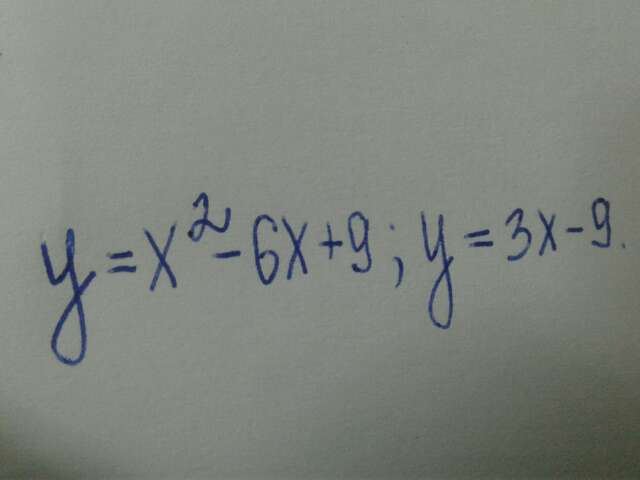 y = x² - 6x + 9; y = 3x - 9.